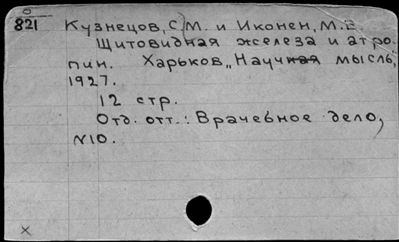 б
821
Кузнецов, С.М. и Иконен, М.В.
Щитовидная железа и атро-
пин. Харьков, „Научная мысль",
1927.
12 стр.
Отд. отт.: Врачебное дело,
N10.
x